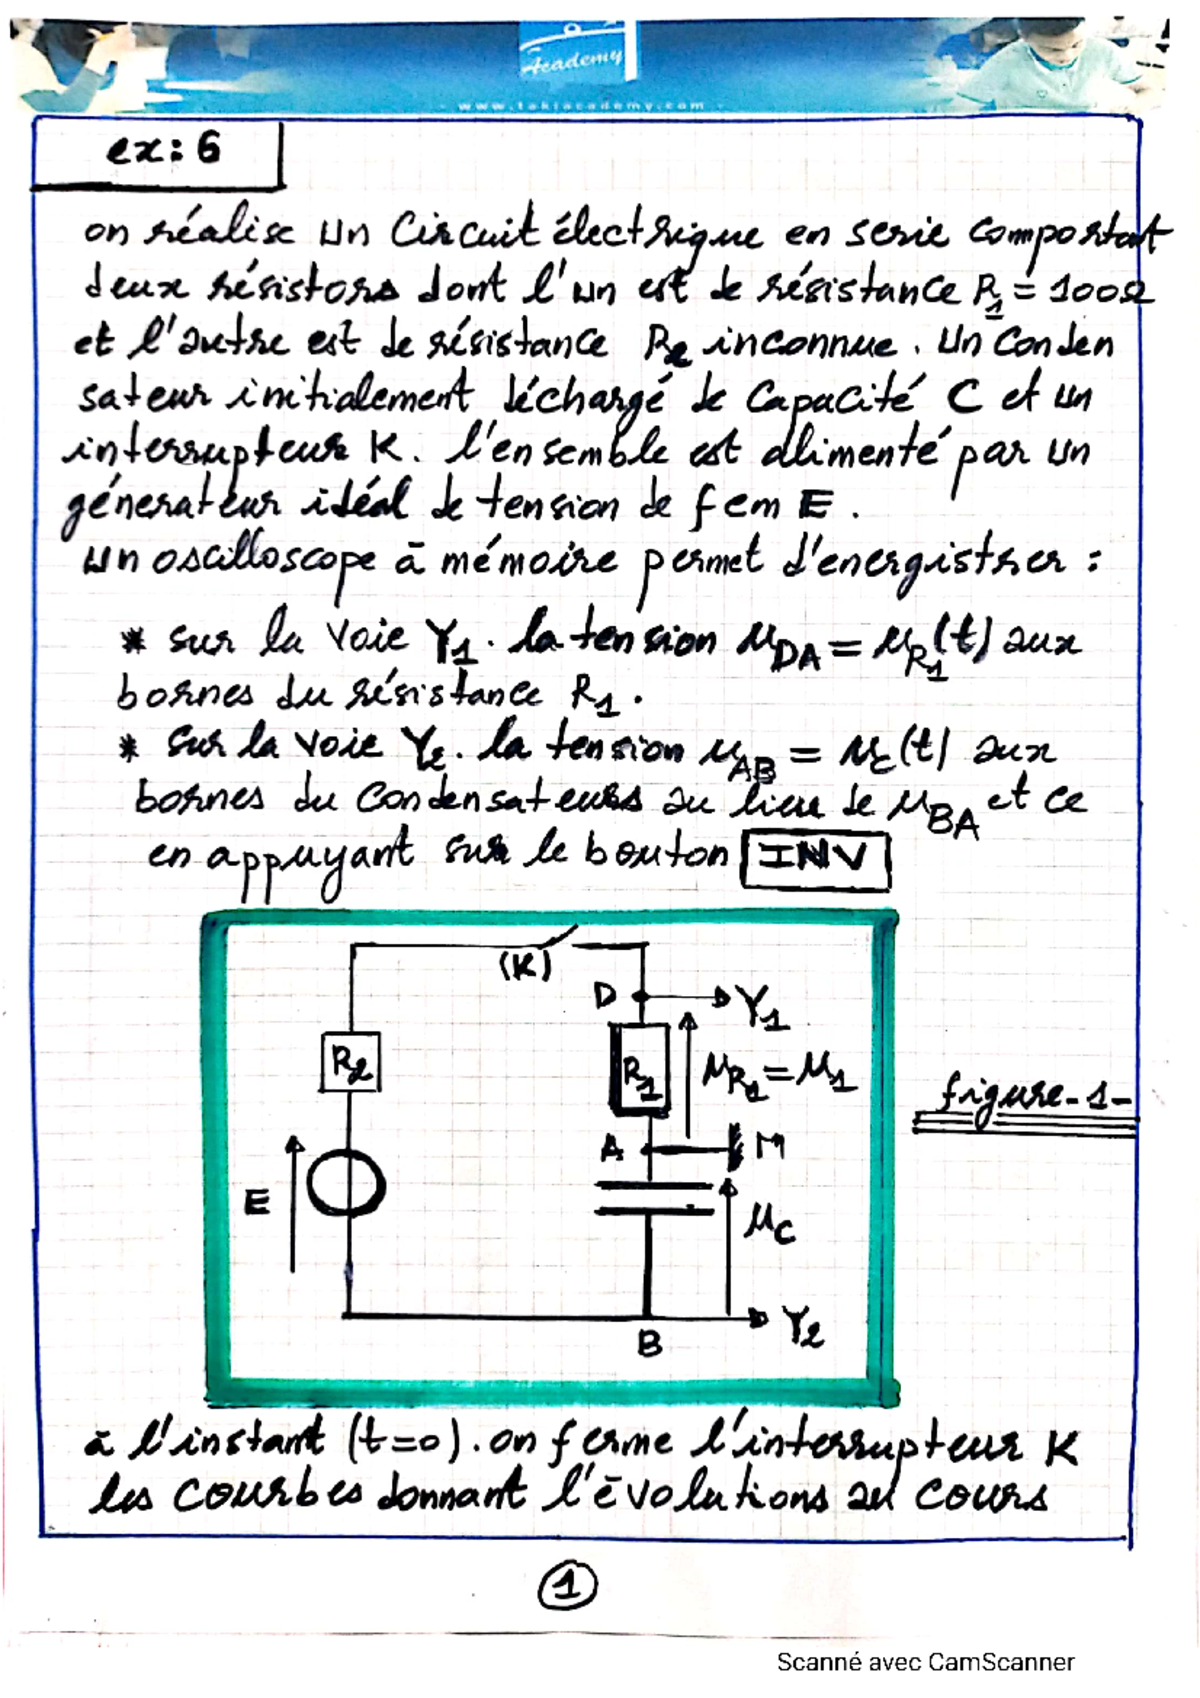 Academy
www.takiacademy.com
ex: 6
on réalise un Circuit électrique en serie comportant
deux résistors dont l'un est de résistance R1 = 100Ω
et l'autre est de résistance R2 inconnue. Un Conden
sateur initialement déchargé de Capacité C et un
interrupteur K. l'ensemble est alimenté par un
génerateur idéal de tension de fem E.
un oscilloscope à mémoire permet d'energistrer :
* sur la voie Y1. la tension uDA = uR1(t) aux
bornes du résistance R1.
* sur la voie Y2. la tension uAB = uc(t) aux
bornes du Condensateurs au lieu de uBA et ce
en appuyant sur le bouton INV
(K)
D
Y1
R2
R1
uR1 = u1
figure-1-
A
M
E
uC
B
Y2
à l'instant (t=0). on ferme l'interrupteur K
les courbes donnant l'évolutions au cours
1
Scanné avec CamScanner